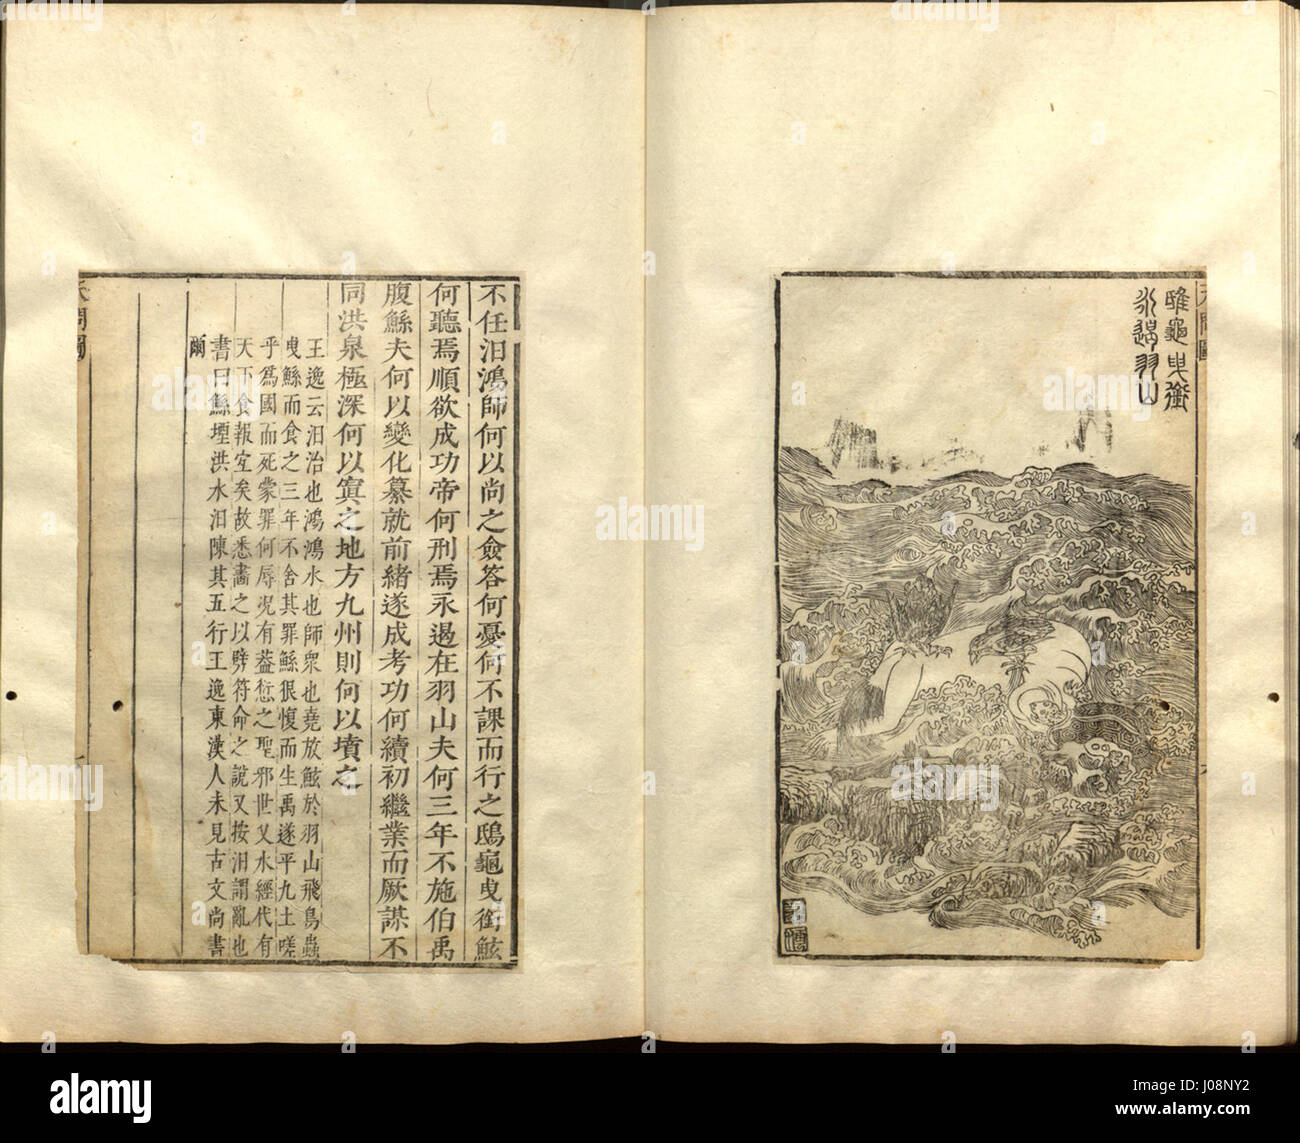 鴟龜曳銜
永遏羽山
天問圖
不任汩鴻師何以尚之僉答何憂何不課而行之鴟龜曳銜鮌
何聽焉順欲成功帝何刑焉永遏在羽山夫何三年不施伯禹
腹鯀夫何以變化纂就前緒遂成考功何續初繼業而厥謀不
同洪泉極深何以窴之地方九州則何以墳之
王逸云汩治也鴻鴻水也師衆也堯放鮌於羽山飛鳥蟲
曳鯀而食之三年不舍其罪鯀很愎而生禹遂平九土嗟
乎爲國而死蒙罪何辱況有葢愆之聖邪世乂水經代有
天下食報宐矣故悉畵之以劈符命之說又按汩謂亂也
書曰鯀堙洪水汩陳其五行王逸東漢人未見古文尚書
爾
天問圖
alamy
J08NY2
www.alamy.com